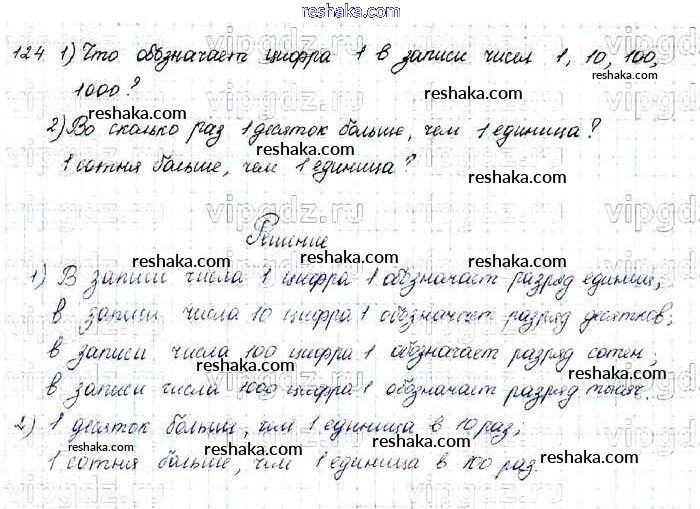 reshaka.com
124. 1) Что обозначает цифра 1 в записи чисел 1, 10, 100,
reshaka.com
1000?
reshaka.com
2) Во сколько раз 1 десяток больше, чем 1 единица?
reshaka.com
1 сотня больше, чем 1 единица?
reshaka.com
vipgdz.ru vipgdz.ru
Решение
reshaka.com
1) В записи числа 1 цифра 1 обозначает разряд единиц;
reshaka.com
в записи числа 10 цифра 1 обозначает разряд десятков;
reshaka.com
в записи числа 100 цифра 1 обозначает разряд сотен;
reshaka.com
в записи числа 1000 цифра 1 обозначает разряд тысяч.
reshaka.com
2) 1 десяток больше, чем 1 единица в 10 раз;
reshaka.com
1 сотня больше, чем 1 единица в 100 раз.
reshaka.com